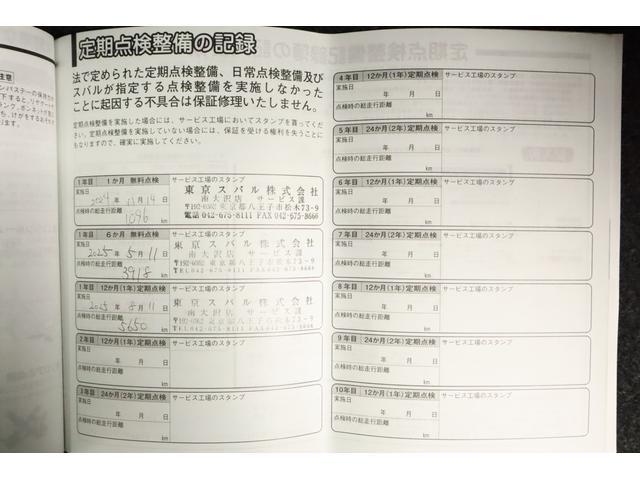 定期点検整備の記録
法で定められた定期点検整備、日常点検整備及び
スバルが指定する点検整備を実施しなかった
ことに起因する不具合は保証修理いたしません。
定期点検整備を実施した場合には、サービス工場においてスタンプを貰ってくだ
さい。定期点検整備を実施していない場合には、保証を受ける権利を失うことに
もなりますので、確実に実施してください。
1年目 1か月 無料点検 サービス工場のスタンプ
実施日
2024年 11月 14日
点検時の総走行距離
1096 km
東京スバル株式会社
南大沢店 サービス課
〒192-0362 東京都八王子市松木73-9
電話 042-675-8111 FAX 042-675-8666
1年目 6か月 無料点検 サービス工場のスタンプ
実施日
2025年 5月 11日
点検時の総走行距離
3918 km
東京スバル株式会社
南大沢店 サービス課
〒192-0362 東京都八王子市松木73-9
TEL 042-675-8111 FAX 042-675-8666
1年目 12か月(1年)定期点検 サービス工場のスタンプ
実施日
2025年 8月 11日
点検時の総走行距離
5650 km
東京スバル株式会社
南大沢店 サービス課
〒192-0362 東京都八王子市松木73-9
TEL 042-675-8111 FAX 042-675-8666
2年目 12か月(1年)定期点検 サービス工場のスタンプ
実施日
年 月 日
点検時の総走行距離
km
3年目 24か月(2年)定期点検 サービス工場のスタンプ
実施日
年 月 日
点検時の総走行距離
km
4年目 12か月(1年)定期点検 サービス工場のスタンプ
実施日
年 月 日
点検時の総走行距離
km
5年目 24か月(2年)定期点検 サービス工場のスタンプ
実施日
年 月 日
点検時の総走行距離
km
6年目 12か月(1年)定期点検 サービス工場のスタンプ
実施日
年 月 日
点検時の総走行距離
km
7年目 24か月(2年)定期点検 サービス工場のスタンプ
実施日
年 月 日
点検時の総走行距離
km
8年目 12か月(1年)定期点検 サービス工場のスタンプ
実施日
年 月 日
点検時の総走行距離
km
9年目 24か月(2年)定期点検 サービス工場のスタンプ
実施日
年 月 日
点検時の総走行距離
km
10年目 12か月(1年)定期点検 サービス工場のスタンプ
実施日
年 月 日
点検時の総走行距離
km